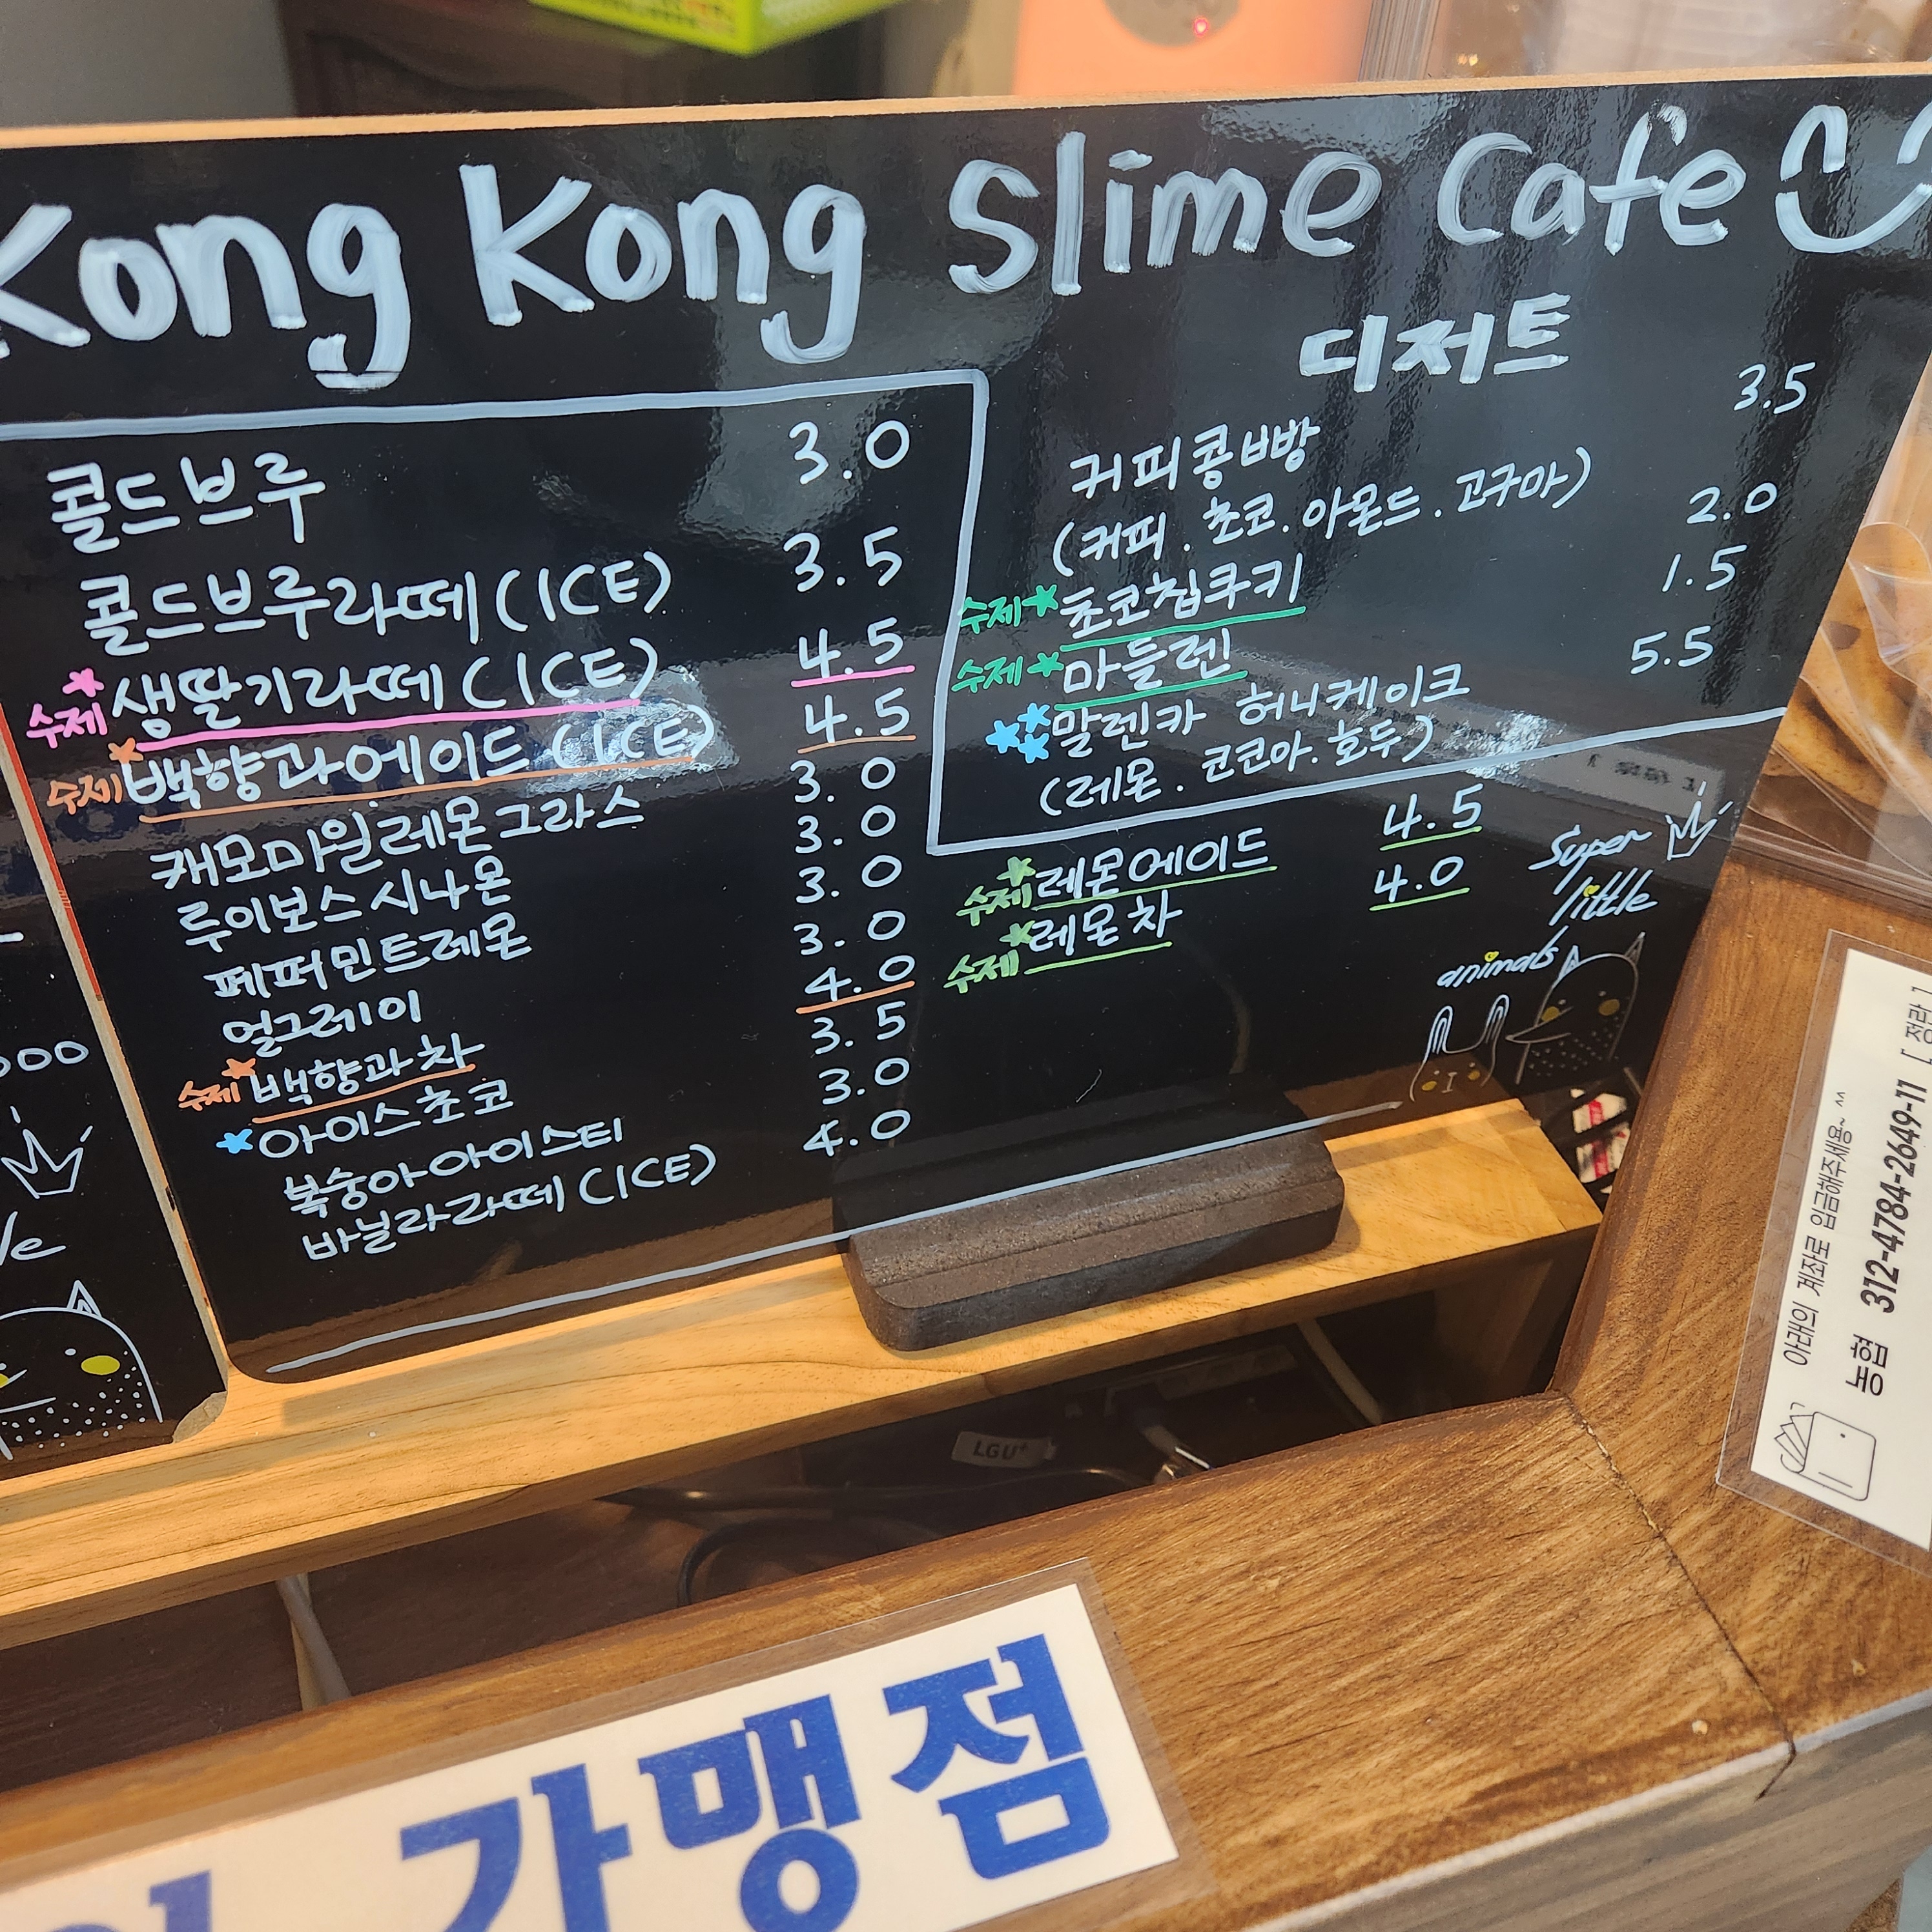 Kong Kong Slime Cafe
콜드브루 3.0
콜드브루라떼(ICE) 3.5
수제 생딸기라떼(ICE) 4.5
수제 백향과에이드(ICE) 4.5
캐모마일레몬그라스 3.0
루이보스시나몬 3.0
페퍼민트레몬 3.0
얼그레이 3.0
수제 백향과차 4.0
아이스초코 3.5
복숭아아이스티 3.0
바닐라라떼(ICE) 4.0
디저트
커피콩빵 3.5
(커피.초코.아몬드.고구마)
수제 초코칩쿠키 2.0
수제 마들렌 1.5
말렌카 허니케이크 5.5
(레몬.코코아.호두)
수제 레몬에이드 4.5
수제 레몬차 4.0
Super
little
animals
아래의 계좌로 입금해주세용~ ^^
농협 312-4784-2649-11
LG U+
가맹점